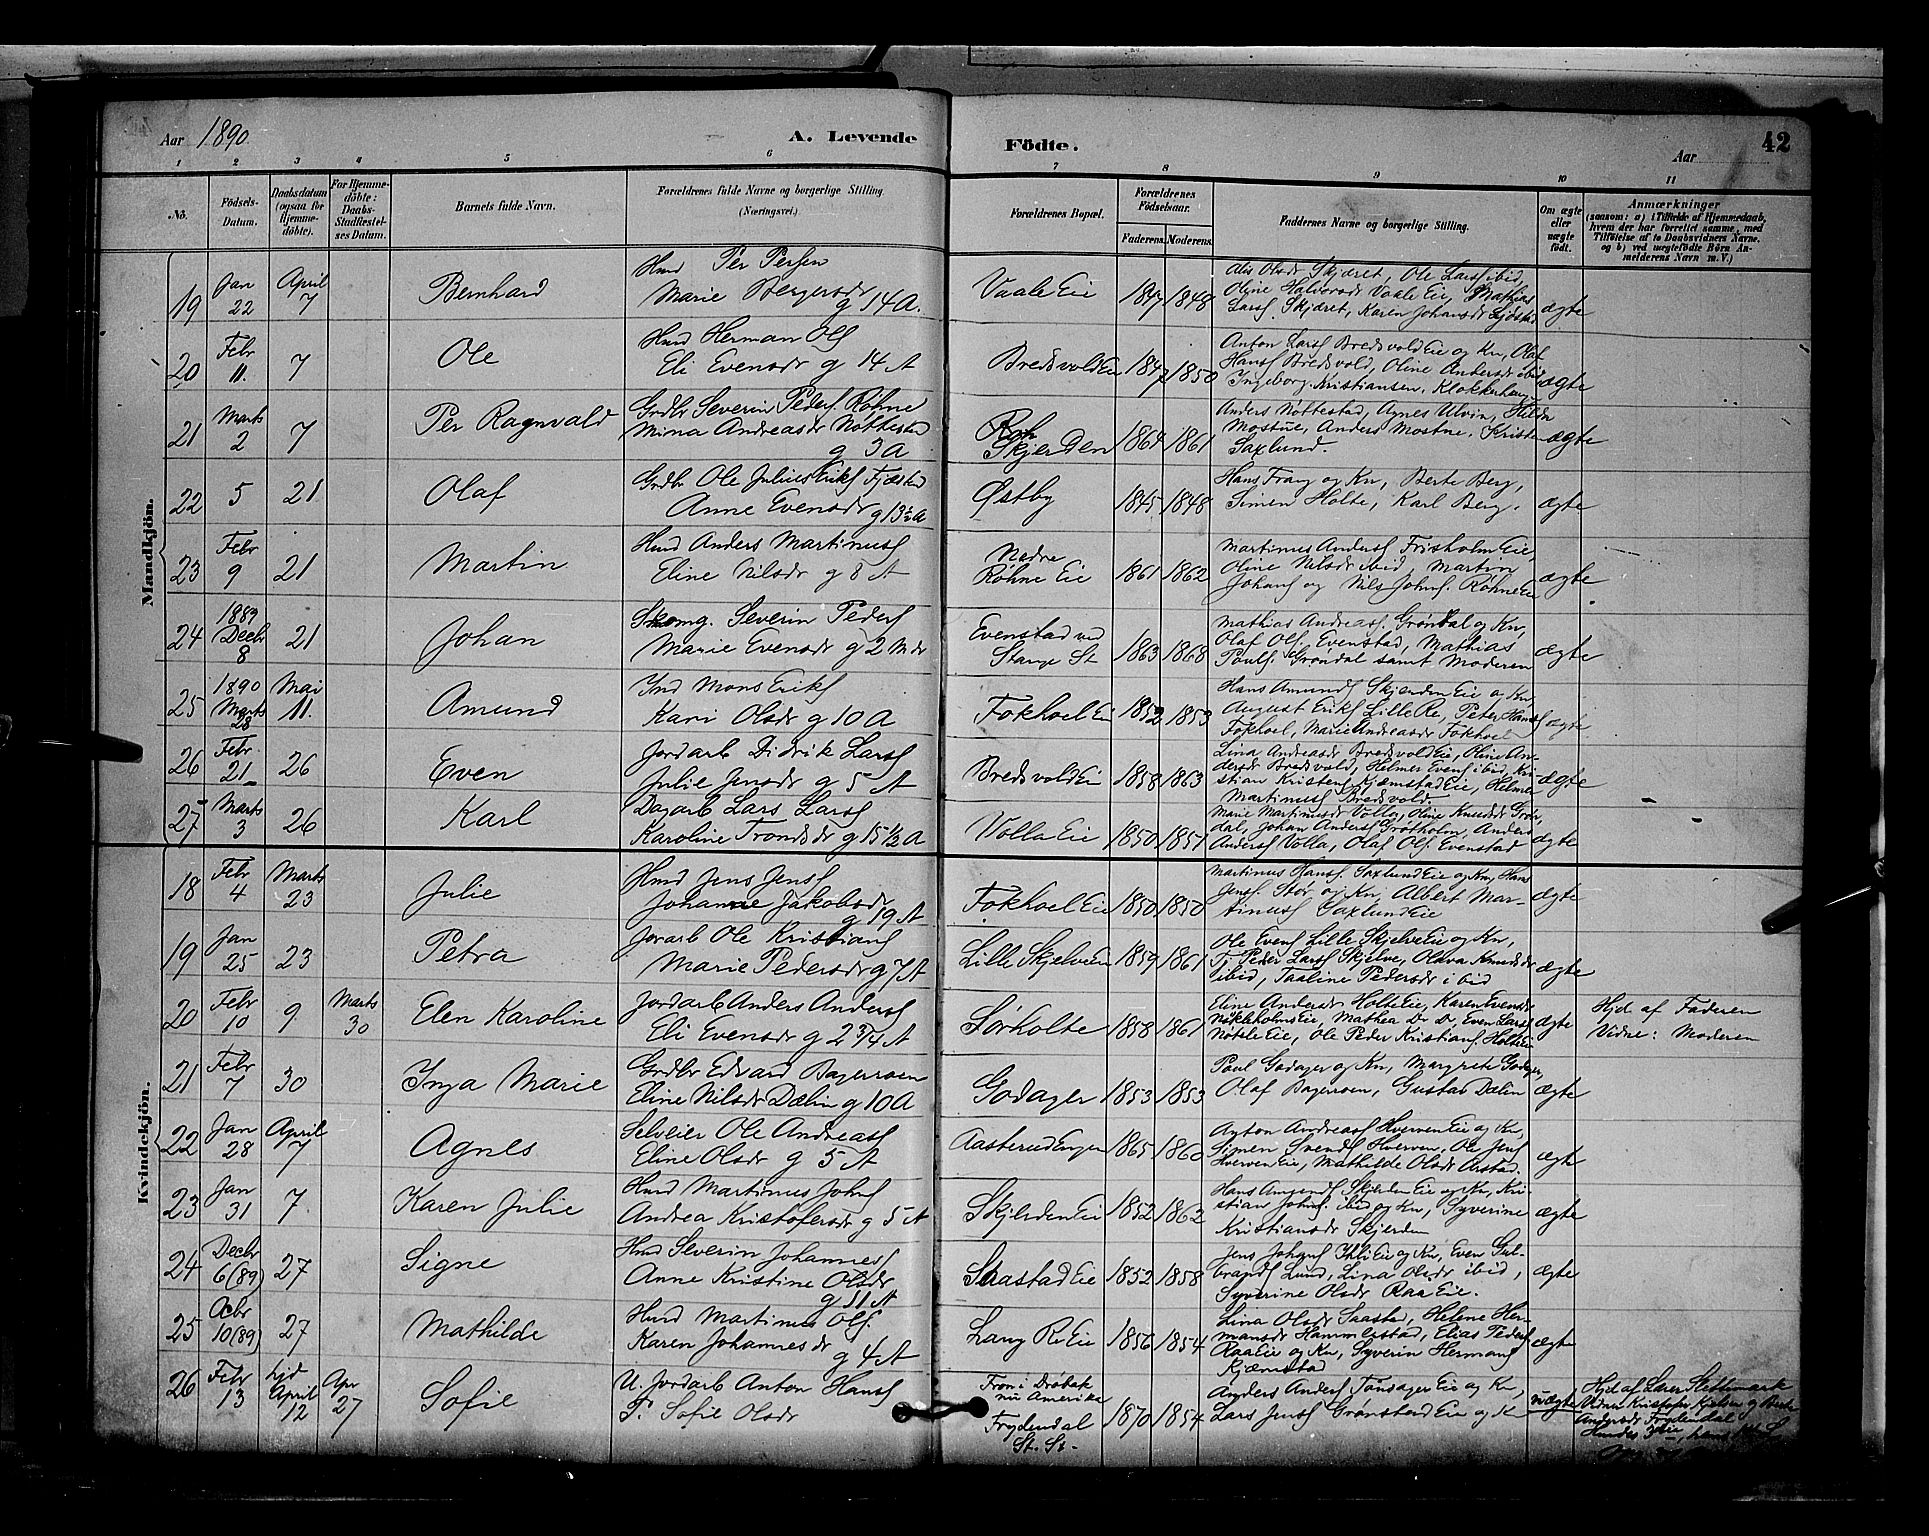 Aar 1890.
A. Levende
Födte.
Aar
42
1 2 3 4 5 6 7 8 9 10 11
No.
Födsels-Datum.
Daabsdatum (ogsaa for Hjemme-döbte).
For Hjemme-döbte: Daabs-Stadfæstel-ses Datum.
Barnets fulde Navn.
Forældrenes fulde Navne og borgerlige Stilling. (Næringsvei.)
Forældrenes Bopæl.
Forældrenes Födselsaar.
Faderens. Moderens.
Faddernes Navne og borgerlige Stilling.
Om ægte eller uægte födt.
Anmærkninger
(saasom: a) i Tilfælde af Hjemmedaab, hvem der har forrettet samme, med Tilföielse af to Daabsvidners Navne, og b) ved uægtefödte Börn An-melderens Navn m. V.)
Mandkjön.
19 Jan 22 April 7 Bernhard Hmd Per Persen Marie Bergersdr g 14 A. Vaale Eie 1848 Olsdr Skjæret, Ole Larss ibid, Oline Halvorsdr Vaale Eie, Mathias Larss. Skjæret, Karen Johansdr ægte
20 Febr 11. 7 Ole Hmd Herman Ols Eli Evensdr g 14 A Bredsvold Eie 1847 1850 Anton Larss Bredsvold Eie og Kn, Olaf Hanss Bredsvold, Oline Andersdr ibid Ingeborg Kristiansen, Klokkerhaug ægte
21 Marts 2 7 Per Ragnvald Grdbr Severin Peders. Røhne Mina Andreasdr Nøttestad g 3 A Skjerden 1864 1861 Anders Nøttestad, Agnes Ulvin, Hilda Mostue, Anders Mostue, Kristen Saxlund. ægte
22 5 21 Olaf Grdbr Ole Julius Eriks Fjæstad Anne Evensdr g 13½ A Østby 1845 1848 Hans Frang og Kn, Berte Berg, Simen Holte, Karl Berg. ægte
23 Febr 9 21 Martin Hmd Anders Martinuss Eline Nilsdr g 8 A Nedre Røhne Eie 1861 1862 Martinus Anderss Frisholm Eie, Oline Nilsdr ibid, Martin Johans og Nils Johns. Røhne Eie ægte
24 1889 Decbr 8 21 Johan Skomg. Severin Peders Marie Evensdr g 2 Mdr Evenstad ved Stange St 1863 1868 Mathias Andreass. Grøndal og Kn, Olaf Ols. Evenstad, Mathias Pouls. Grøndal samt Moderen ægte
25 1890 Marts 28 Mai 11. Amund Ind Mons Eriks Kari Olsdr g 10 A Fokhoel Eie 1852 1853 Hans Amunds Skjerden Eie og Kn, August Eriks Lille Re, Peter Hanss Fokhoel, Marie Andreasdr Fokhoel ægte
26 Febr. 21 26 Even Jordarb Didrik Larss Julie Jensdr g 5 A Bredsvold Eie 1858 1863 Lina Andreasdr Bredsvold Eie, Oline Andersdr Bredsvold, Helmer Evens ibid, Kristian Kristens Kjæmstad Eie, Helmer Martinuss Bredsvold. ægte
27 Marts 3 26 Karl Dagarb Lars Larss Karoline Trondsdr g 15 1/2 A Volla Eie 1850 1851 Marie Martinusdr Volla, Oline Knudsdr Grøndal, Johan Anderss Grøtholm, Anders Anderss Volla, Olaf Ols. Evenstad ægte
Kvindekjön.
18 Febr 4 Marts 23 Julie Hmd Jens Jenss Johanne Jakobsdr g 19 A Fokhoel Eie 1850 1850 Martinus Hanss Saxlund Eie og Kn, Hans Jens. Stør og Kn, Albert Martinuss Saxlund Eie ægte
19 Jan 25 23 Petra Jorarb Ole Kristians Marie Pedersdr g 7 A Lille Skjelve Eie 1859 1861 Ole Evens Lille Skjelve Eie og Kn, Peder Larss Skjelve, Oldva Knudsdr ibid, Taaline Pedersdr ibid ægte
20 Febr 10 9 Marts 30 Elen Karoline Jordarb Anders Anderss Eli Evensdr g 2 3/4 A Sørholte 1858 1861 Eline Andersdr Holte Eie, Karen Evensdr Nøkleholms Eie, Mathea Dr Dr, Even Larss Nøkle Eie, Ole Peder Kristians. Holte Eie ægte Hjd af Faderen Vidne: Moderen
21 Febr 7 30 Inga Marie Grdbr Edvard Bagerroen Eline Nilsdr Dælin g 10 A Godager 1853 1853 Poul Godager og Kn, Margrete Godager, Olaf Bageroen, Gustav Dælin ægte
22 Jan 28 April 7 Agnes Selveier Ole Andreass Eline Olsdr g 5 A Aasterudengen 1865 1860 Anton Andreass Hverven Eie og Kn, Simen Svends Hverven, Ole Jens Hverven Eie, Mathilde Olsdr ægte
23 Jan 31 7. Karen Julie Hmd Martinus Johns Andrea Kristofersdr g 5 A Skjerden Eie 1852 1862 Hans Amunds Skjerden Eie og Kn, Kristian Johns. ibid og Kn, Syverine Kristiansdr Skjerden ægte
24 Decbr 6 (89) 27 Signe Hmd Severin Johanness Anne Kristine Olsdr g 11 A Saastad Eie 1852 1858 Jens Johans Ihli Eie og Kn, Even Gulbrands Lund, Lina Olsdr ibid, Syverine Olsdr Raa Eie. ægte
25 10 (89) 27 Mathilde Hmd Martinus Ols. Karen Johannesdr g 4 A Lang Re Eie 1856 1854 Lina Olsdr Saastad, Helene Hermansdr Hammelstad, Elias Peders Raa Eie og Kn, Syverin Hermans Kjæmstad ægte
26 Febr 13 hjd April 12 Apr 27 Sofie U. Jordarb Anton Hanss P. Sofie Olsdr Fron i Drøbak nu Amerika Frydendal St. St. 1870 1854 Anders Anderss Tønsager Eie og Kn, Lars Jenss Grønstad Eie og K uægte Hjd af Lars Slettemark Vidner Kristofer og Berte Andersdr Frydendal